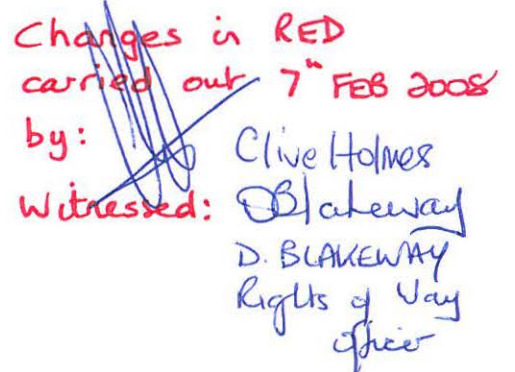 Changes in RED
carried out 7th FEB 2008
by: Clive Holmes
Witnessed: DBlakeway
D. BLAKEWAY
Rights of Way
Officer